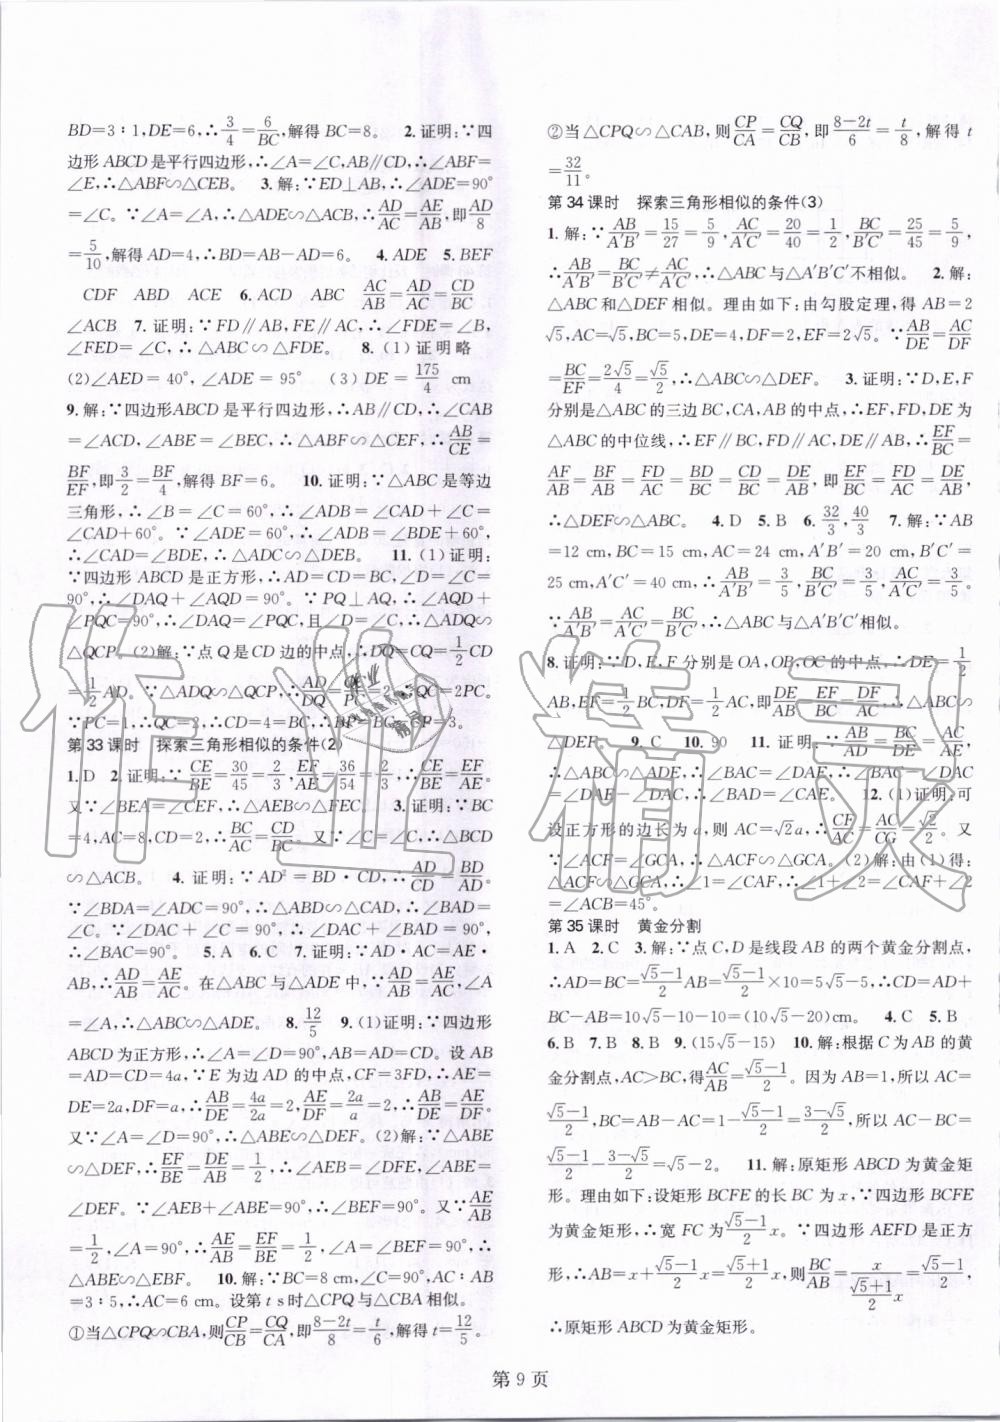 BD=3∶1,DE=6,∴3/4=6/BC,解得BC=8。 2.证明:∵四
边形ABCD是平行四边形,∴∠A=∠C,AB∥CD,∴∠ABF=
∠E,∴△ABF∽△CEB。 3.解:∵ED⊥AB,∴∠ADE=90°
=∠C。∵∠A=∠A,∴△ADE∽△ACB,∴AD/AC=AE/AB,即AD/8
=5/10,解得AD=4,∴BD=AB-AD=6。 4.ADE 5.BEF
CDF ABD ACE 6.ACD ABC AC/AB=AD/AC=CD/BC
∠ACB 7.证明:∵FD∥AB,FE∥AC,∴∠FDE=∠B,
∠FED=∠C,∴△ABC∽△FDE。 8.(1)证明略
(2)∠AED=40°,∠ADE=95° (3)DE=175/4 cm
9.解:∵四边形ABCD是平行四边形,∴AB∥CD,∴∠CAB
=∠ACD,∠ABE=∠BEC,∴△ABF∽△CEF,∴AB/CE=
BF/EF,即3/2=BF/4,解得BF=6。 10.证明:∵△ABC是等边
三角形,∴∠B=∠C=60°,∴∠ADB=∠CAD+∠C=
∠CAD+60°。∵∠ADE=60°,∴∠ADB=∠BDE+60°,
∴∠CAD=∠BDE,∴△ADC∽△DEB。 11.(1)证明:
∵四边形ABCD是正方形,∴AD=CD=BC,∠C=∠D=
90°,∴∠DAQ+∠AQD=90°。∵PQ⊥AQ,∴∠AQD+
∠PQC=90°,∴∠DAQ=∠PQC,且∠D=∠C,∴△ADQ∽
△QCP。 (2)解:∵点Q是CD边的中点,∴DQ=CQ=1/2CD
=1/2AD。∵△ADQ∽△QCP,∴AD/DQ=QC/PC=2,∴QC=2PC。
∵PC=1,∴QC=2,∴CD=4=BC,∴BP=BC-CP=3。
第33课时 探索三角形相似的条件(2)
1.D 2.证明:∵CE/BE=30/45=2/3,EF/AE=36/54=2/3,∴CE/BE=EF/AE。
又∵∠BEA=∠CEF,∴△AEB∽△FEC。 3.证明:∵BC
=4,AC=8,CD=2,∴BC/AC=CD/BC。又∵∠C=∠C,∴△BCD
∽△ACB。 4.证明:∵AD²=BD·CD,∴AD/CD=BD/AD。
∵∠BDA=∠ADC=90°,∴△ABD∽△CAD,∴∠B=
∠DAC。∵∠DAC+∠C=90°,∴∠DAC+∠BAD=90°,
∴∠BAC=90°。 5.A 6.C 7.证明:∵AD·AC=AE·
AB,∴AD/AB=AE/AC。在△ABC与△ADE中,∵AD/AB=AE/AC,∠A
=∠A,∴△ABC∽△ADE。 8.12/5 9.(1)证明:∵四边形
ABCD为正方形,∴∠A=∠D=90°,AB=AD=CD。设AB
=AD=CD=4a,∵E为边AD的中点,CF=3FD,∴AE=
DE=2a,DF=a,∴AB/DE=4a/2a=2,AE/DF=2a/a=2,∴AB/DE=AE/DF。
又∵∠A=∠D=90°,∴△ABE∽△DEF。(2)解:∵△ABE
∽△DEF,∴EF/BE=DE/AB=1/2,∴∠AEB=∠DFE,∠ABE=
∠DEF。∵∠AEB+∠ABE=90°,∴∠BEF=90°。又∵AE/AB
=1/2,∠A=90°,∴AE/AB=EF/BE=1/2,∠A=∠BEF=90°,∴
△ABE∽△EBF。 10.解:∵BC=8 cm,∠C=90°,AC∶AB
=3∶5,∴AC=6 cm。设第t s时△CPQ与△CBA相似。
①当△CPQ∽CBA,则CP/CB=CQ/CA,即8-2t/8=t/6,解得t=12/5。
②当△CPQ∽△CAB,则CP/CA=CQ/CB,即8-2t/6=t/8,解得t=
32/11。
第34课时 探索三角形相似的条件(3)
1.解:∵AB/A′B′=15/27=5/9,AC/A′C′=20/40=1/2,BC/B′C′=25/45=5/9,
∴AB/A′B′=BC/B′C′≠AC/A′C′,∴△ABC与△A′B′C′不相似。 2.解:
△ABC和△DEF相似。理由如下:由勾股定理,得AB=2
√5,AC=√5,BC=5,DE=4,DF=2,EF=2√5。∵AB/DE=AC/DF
=BC/EF=2√5/4=√5/2,∴△ABC∽△DEF。 3.证明:∵D,E,F
分别是△ABC的三边BC,CA,AB的中点,∴EF,FD,DE为
△ABC的中位线,∴EF∥BC,FD∥AC,DE∥AB,∴EF/BC=
AF/AB=BF/AB=FD/AC=BD/BC=CD/BC=DE/AB,即EF/BC=FD/AC=DE/AB,
∴△DEF∽△ABC。 4.D 5.B 6.32/3,40/3 7.解:∵AB
=12 cm,BC=15 cm,AC=24 cm,A′B′=20 cm,B′C′=
25 cm,A′C′=40 cm,∴AB/A′B′=3/5,BC/B′C′=3/5,AC/A′C′=3/5。
∴AB/A′B′=AC/A′C′=BC/B′C′,∴△ABC与△A′B′C′相似。
8.证明:∵D,E,F分别是OA,OB,OC的中点,∴DE=1/2
AB,EF=1/2BC,DF=1/2AC,即DE/AB=EF/BC=DF/AC,∴△ABC∽
△DEF。 9.C 10.90 11.证明:∵AB/AD=BC/DE=AC/AE,
∴△ABC∽△ADE,∴∠BAC=∠DAE,∴∠BAC-∠DAC
=∠DAE-∠DAC,∴∠BAD=∠CAE。 12.(1)证明:可
设正方形的边长为a,则AC=√2a,∴CF/AC=AC/CG=√2/2。又
∵∠ACF=∠GCA,∴△ACF∽△GCA。(2)解:由(1)得:
△ACF∽△GCA,∴∠1=∠CAF,∴∠1+∠2=∠CAF+∠2
=∠ACB=45°。
第35课时 黄金分割
1.A 2.C 3.解:∵点C,D是线段AB的两个黄金分割点,
∴AD=BC=√5-1/2AB=√5-1/2×10=5√5-5,∴CD=AD+
BC-AB=10√5-10-10=(10√5-20)cm。 4.C 5.B
6.B 7.B 8.B 9.(15√5-15) 10.解:根据C为AB的黄
金分割点,AC>BC,得AC/AB=√5-1/2。因为AB=1,所以AC=
√5-1/2,BC=AB-AC=1-√5-1/2=3-√5/2,所以AC-BC=
√5-1/2-3-√5/2=√5-2。 11.解:原矩形ABCD为黄金矩
形。理由如下:设矩形BCFE的长BC为x,∵四边形BCFE
为黄金矩形,∴宽FC为√5-1/2x。∵四边形AEFD是正方
形,∴AB=x+√5-1/2x=√5+1/2x,则BC/AB=x/(√5+1/2x)=√5-1/2,
∴原矩形ABCD为黄金矩形。
第9页
作业精灵